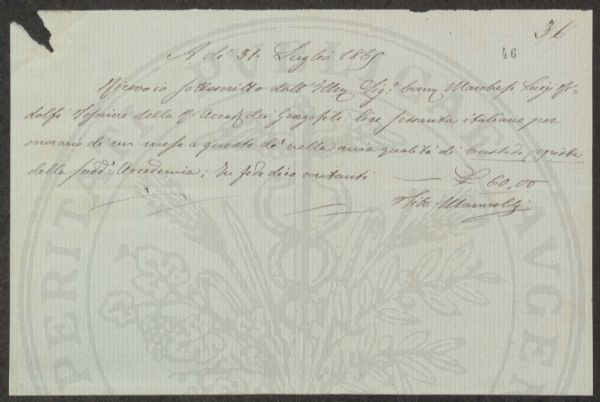 36
46
A dì 31. Luglio 1865
Ricevo io sottoscritto dall' Illmo Sigr. Comm Marchese Luigi Ri-
dolfi Tesoriere della R. Accad. dei Georgofili lire sessanta italiane per
onorario di un mese a questo dì nella mia qualità di Custode copista
della sudda Accademia; In fede dico contanti — £ 60,00
PERITATI PUBLICAE AUGEN